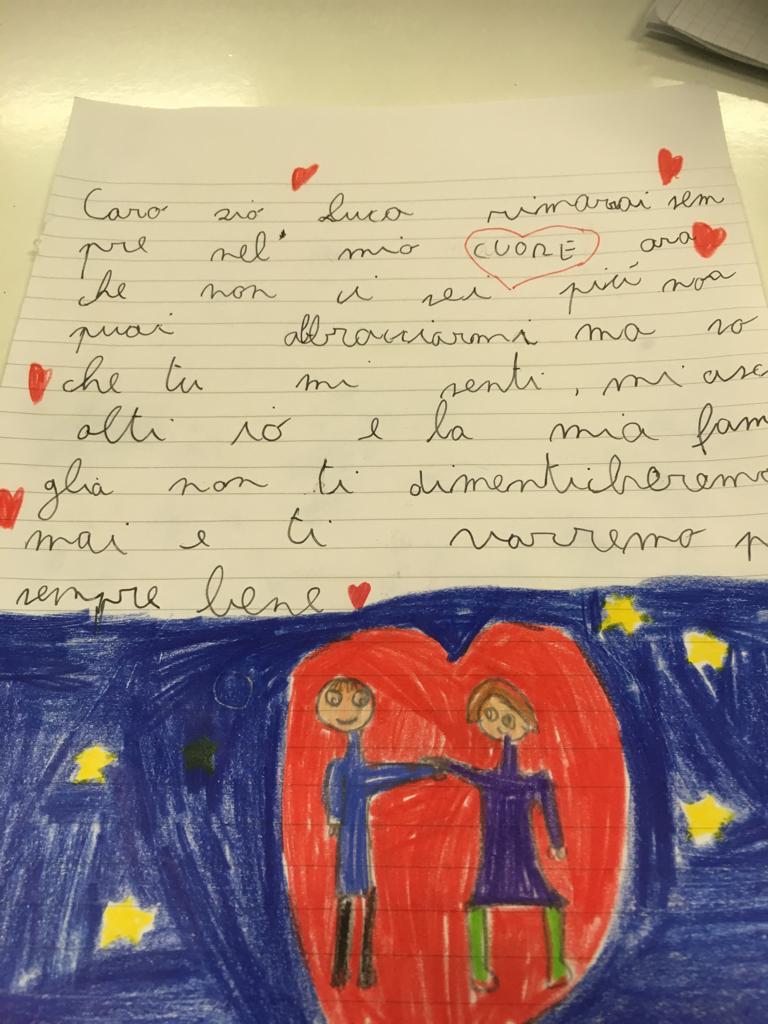 Caro zió Luca rimarrai sem
pre nel mio CUORE ora
che non ci sei più non
puoi abbracciarmi ma so
che tu mi senti, mi asc
olti ió e la mia fam
glia non ti dimenticheremo
mai e ti vorremo p
sempre bene